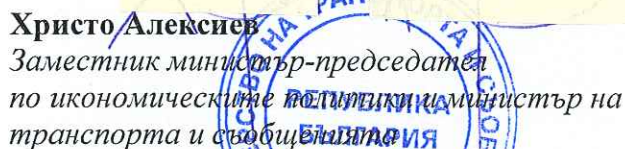 Христо Алексиев
Заместник министър-председател
по икономическите политики и министър на
транспорта и съобщенията
РЕПУБЛИКА
БЪЛГАРИЯ